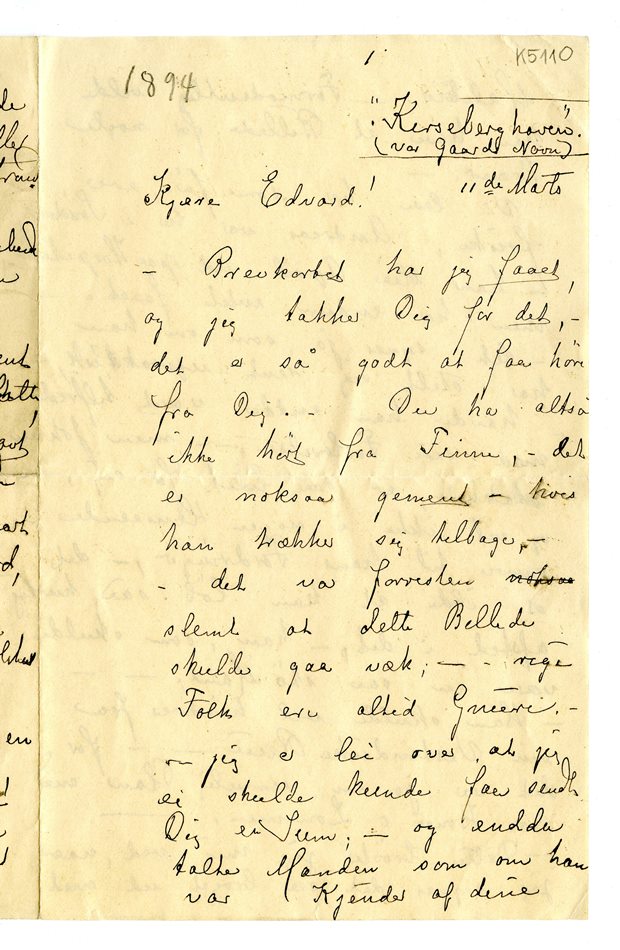 de
K5110
1
1894
"Kerseberghaven".
(var Gaards Navn)
Kjære Edvard! 11 de Marts
– Brevkortet har jeg faaet,
og jeg takker Dig for det, –
det er så godt at faa høre
fra Dig. – Du ha altså
ikke hört fra Finne, – det
er noksaa gement – hvis
han trækker sig tilbage, –
– det va forresten noksaa
slemt at dette Billede
skulde gaa væk; – – rige
Folk ere altid Gnieri. –
– jig er lei over at jeg
ei skulde kunde faa sendt
Dig ei Sum; – og endda
talte Manden som om han
var Kjender af dine
en